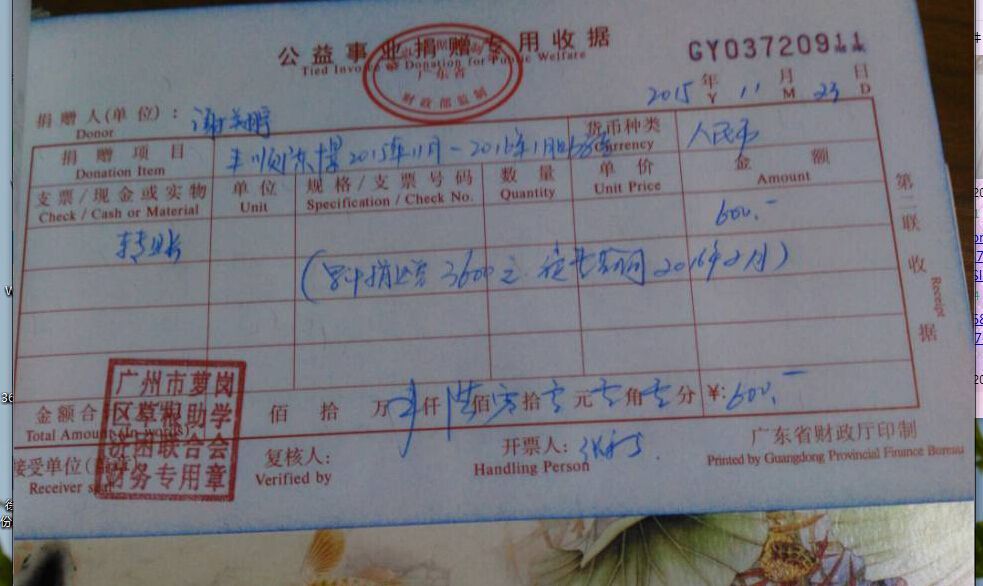 公益事业捐赠专用收据
Tied Invoice of Donation for Public Welfare
广东省
财政部监制
GY03720911
2015 年 11 月 23 日
Y M D
捐赠人(单位):
Donor
捐赠项目 2015年11月-2016年1月 货币种类 人民币
Donation Item Currency
支票/现金或实物 单位 规格/支票号码 数量 单价 金额
Check / Cash or Material Unit Specification / Check No. Quantity Unit Price Amount
转账 600.-
3600元 2016年2月)
金额合 佰 拾 万 仟 佰 拾 元 角 分 ¥: 600.-
Total Amount (In words)
接受单位( 复核人: 开票人: 广东省财政厅印制
Receiver seal Verified by Handling Person Printed by Guangdong Provincial Finance Bureau
广州市萝岗
区草根助学
团联合会
财务专用章
第二联 收据
Receipt